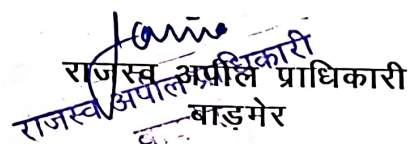 राजस्व अपील प्राधिकारी
बाड़मेर
राजस्व अपील प्राधिकारी